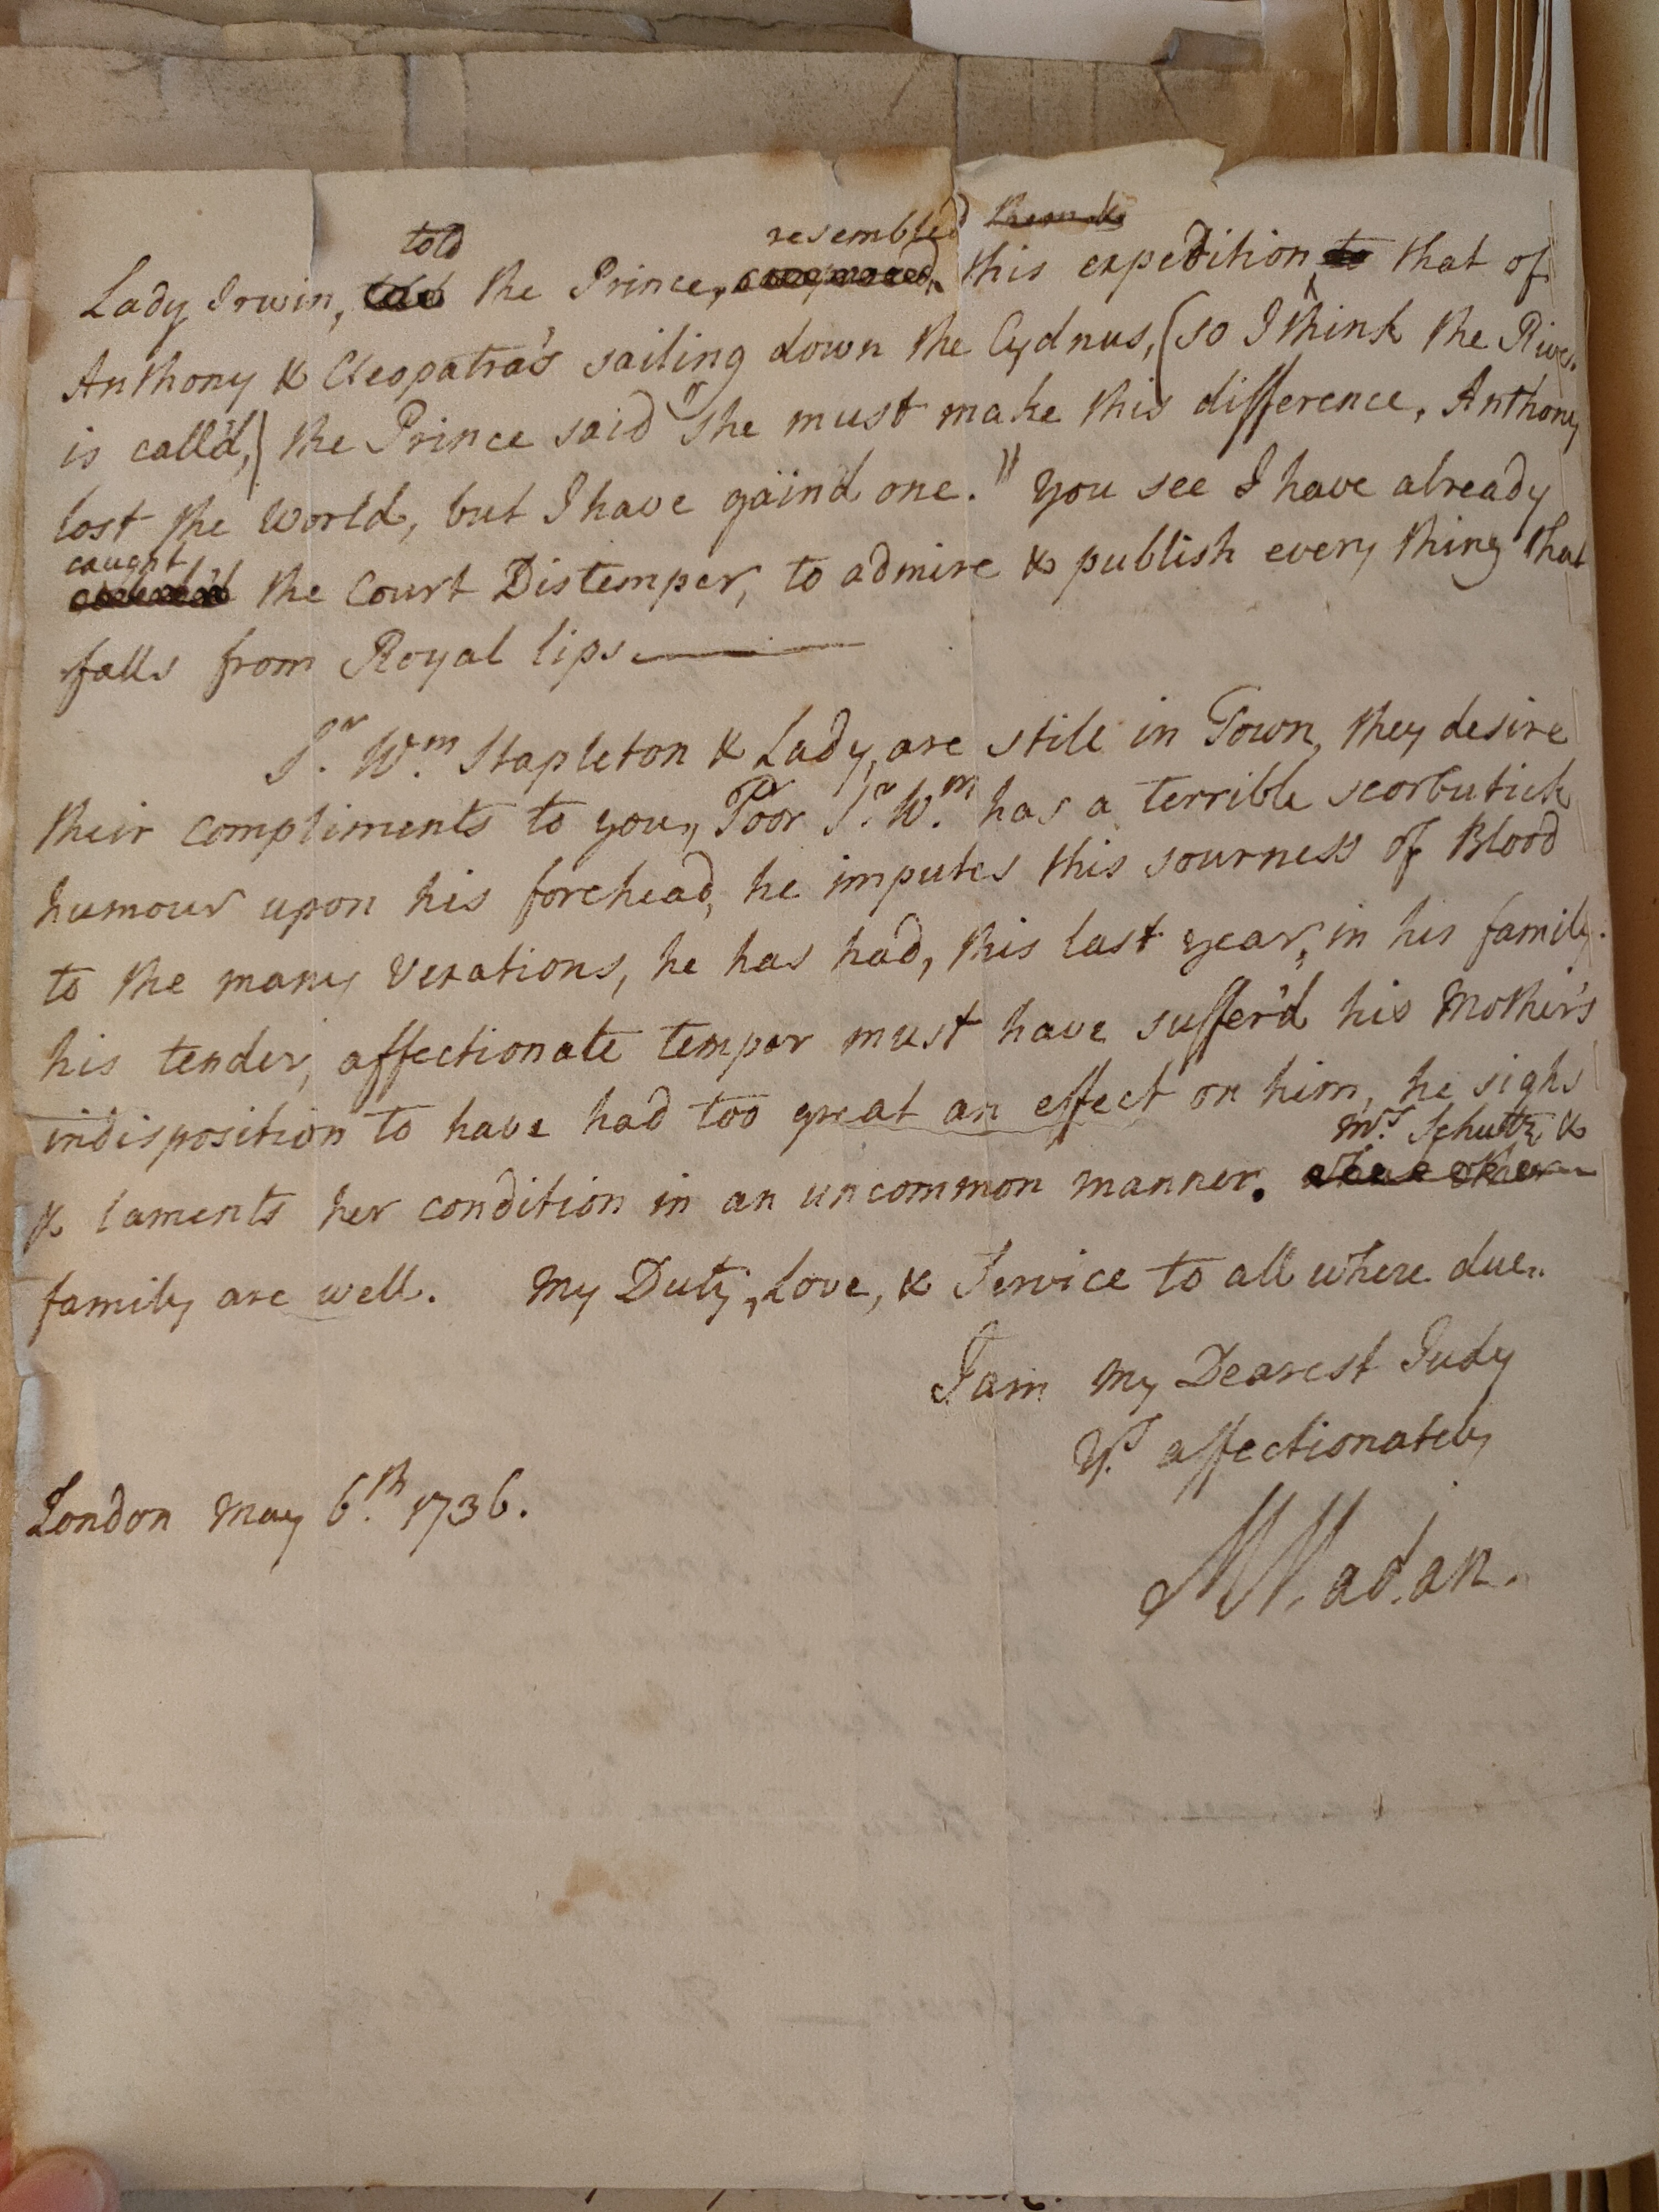 told resembled
Lady Irwin, the Prince, this expedition that of
Anthony & Cleopatra's sailing down the Cydnus, (so I think the River
is call'd,) the Prince said "she must make this difference, Anthony
lost the World, but I have gain'd one." you see I have already
caught
the Court Distemper, to admire & publish every thing that
falls from Royal lips
Sr. Wm. Stapleton & Lady, are still in Town, they desire
their compliments to you, Poor Sr. Wm. has a terrible scorbutick
humour upon his forehead, he imputes this sourness of Blood
to the many Vexations, he has had, this last year, in his family.
his tender, affectionate temper must have suffer'd his Mother's
indisposition to have had too great an effect on him, he sighs
Mrs. Schutz &
& laments her condition in an uncommon manner.
family are well. My Duty, Love, & Service to all where due.
I am My Dearest Judy
Yrs. affectionately
London May 6th. 1736.
M Madan.